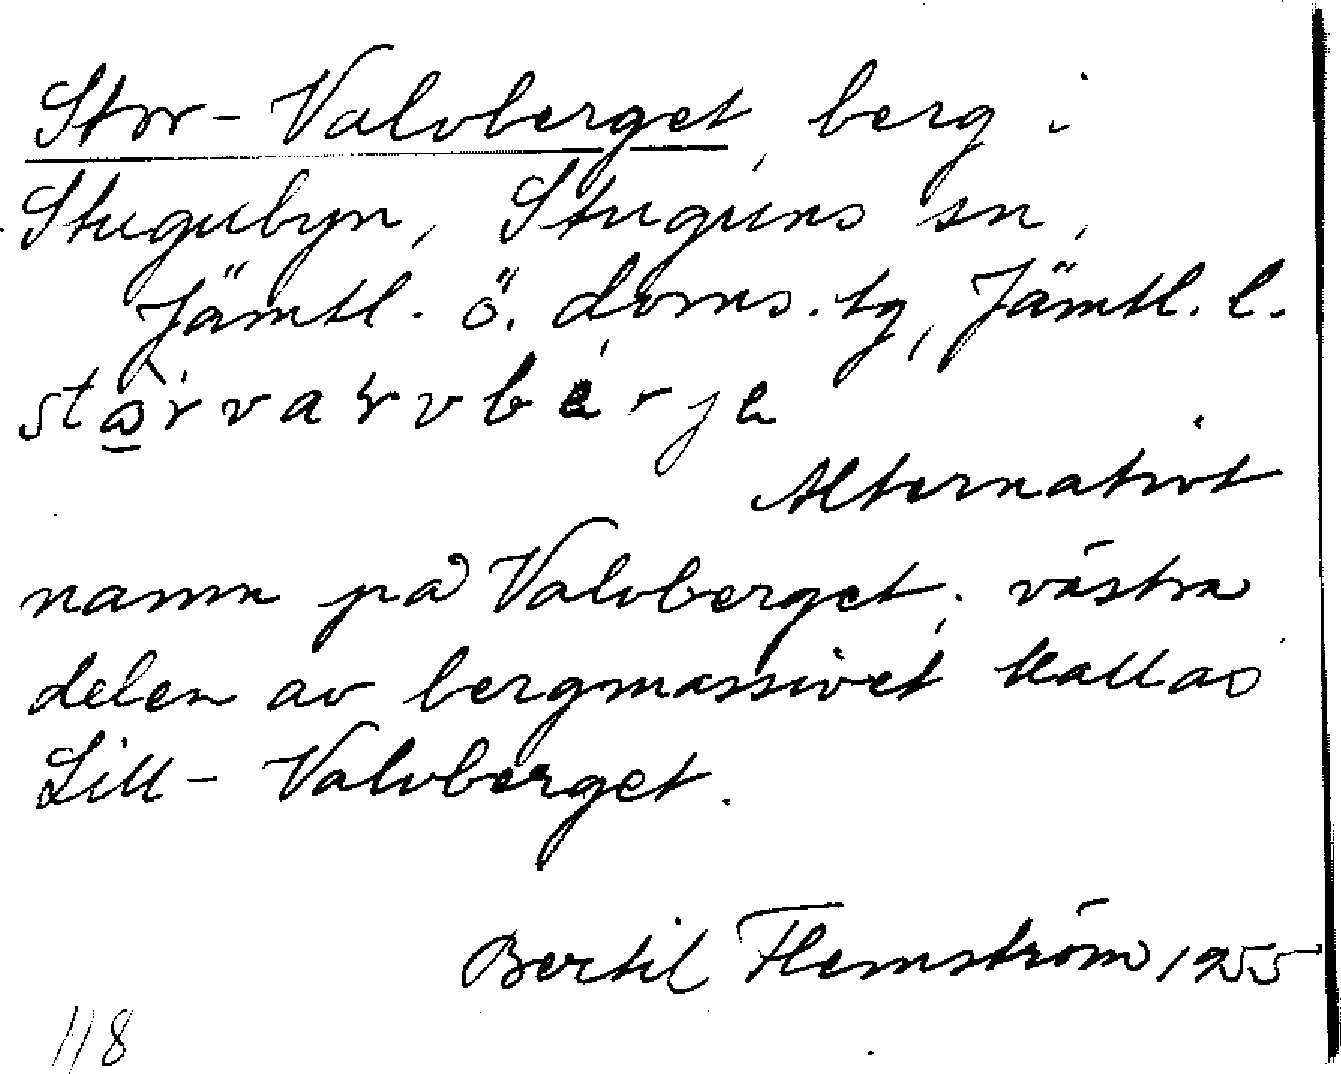 Stor-Valvberget, berg i
Stugubyn, Stuguns sn,
Jämtl. ö. doms. tg, Jämtl. l.
Alternativt
namn på Valvberget; västra
delen av bergmassivet kallas
Lill-Valvberget.
Bertil Flemström 1955
118